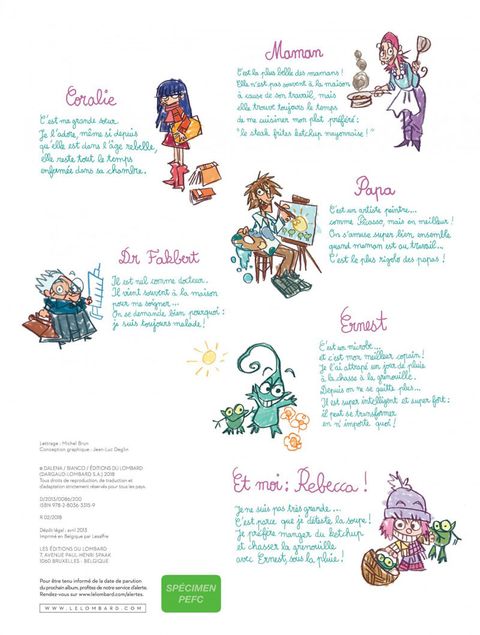 Maman
C'est la plus belle des mamans !
Elle n'est pas souvent à la maison
à cause de son travail, mais
elle trouve toujours le temps
de me cuisiner mon plat préféré :
"le steak frites ketchup mayonnaise !"
Coralie
C'est ma grande sœur.
Je l'adore, même si depuis
qu'elle est dans l'âge rebelle,
elle reste tout le temps
enfermée dans sa chambre.
Papa
C'est un artiste peintre...
comme Picasso, mais en meilleur !
On s'amuse super bien ensemble
quand maman est au travail...
C'est le plus rigolo des papas !
Dr Fakbert
Il est nul comme docteur.
Il vient souvent à la maison
pour me soigner...
On se demande bien pourquoi :
je suis toujours malade !
Ernest
C'est un microbe...
et c'est mon meilleur copain !
Je l'ai attrapé un jour de pluie
à la chasse à la grenouille.
Depuis on ne se quitte plus...
Il est super intelligent et super fort :
il peut se transformer
en n'importe quoi !
Et moi : Rebecca !
Je ne suis pas très grande...
C'est parce que je déteste la soupe !
Je préfère manger du ketchup
et chasser la grenouille
avec Ernest, sous la pluie !
Lettrage : Michel Brun
Conception graphique : Jean-Luc Deglin
© DALENA / BIANCO / ÉDITIONS DU LOMBARD
(DARGAUD-LOMBARD S.A.) 2018
Tous droits de reproduction, de traduction et
d'adaptation strictement réservés pour tous les pays.
D/2013/0086/200
ISBN 978-2-8036-3315-9
R 02/2018
Dépôt légal : avril 2013
Imprimé en Belgique par Lesaffre
LES ÉDITIONS DU LOMBARD
7, AVENUE PAUL HENRI SPAAK
1060 BRUXELLES - BELGIQUE
Pour être tenu informé de la date de parution
du prochain album, profitez de notre service d'alerte.
Rendez-vous sur www.lelombard.com/alertes.
WWW.LELOMBARD.COM
SPÉCIMEN
PEFC